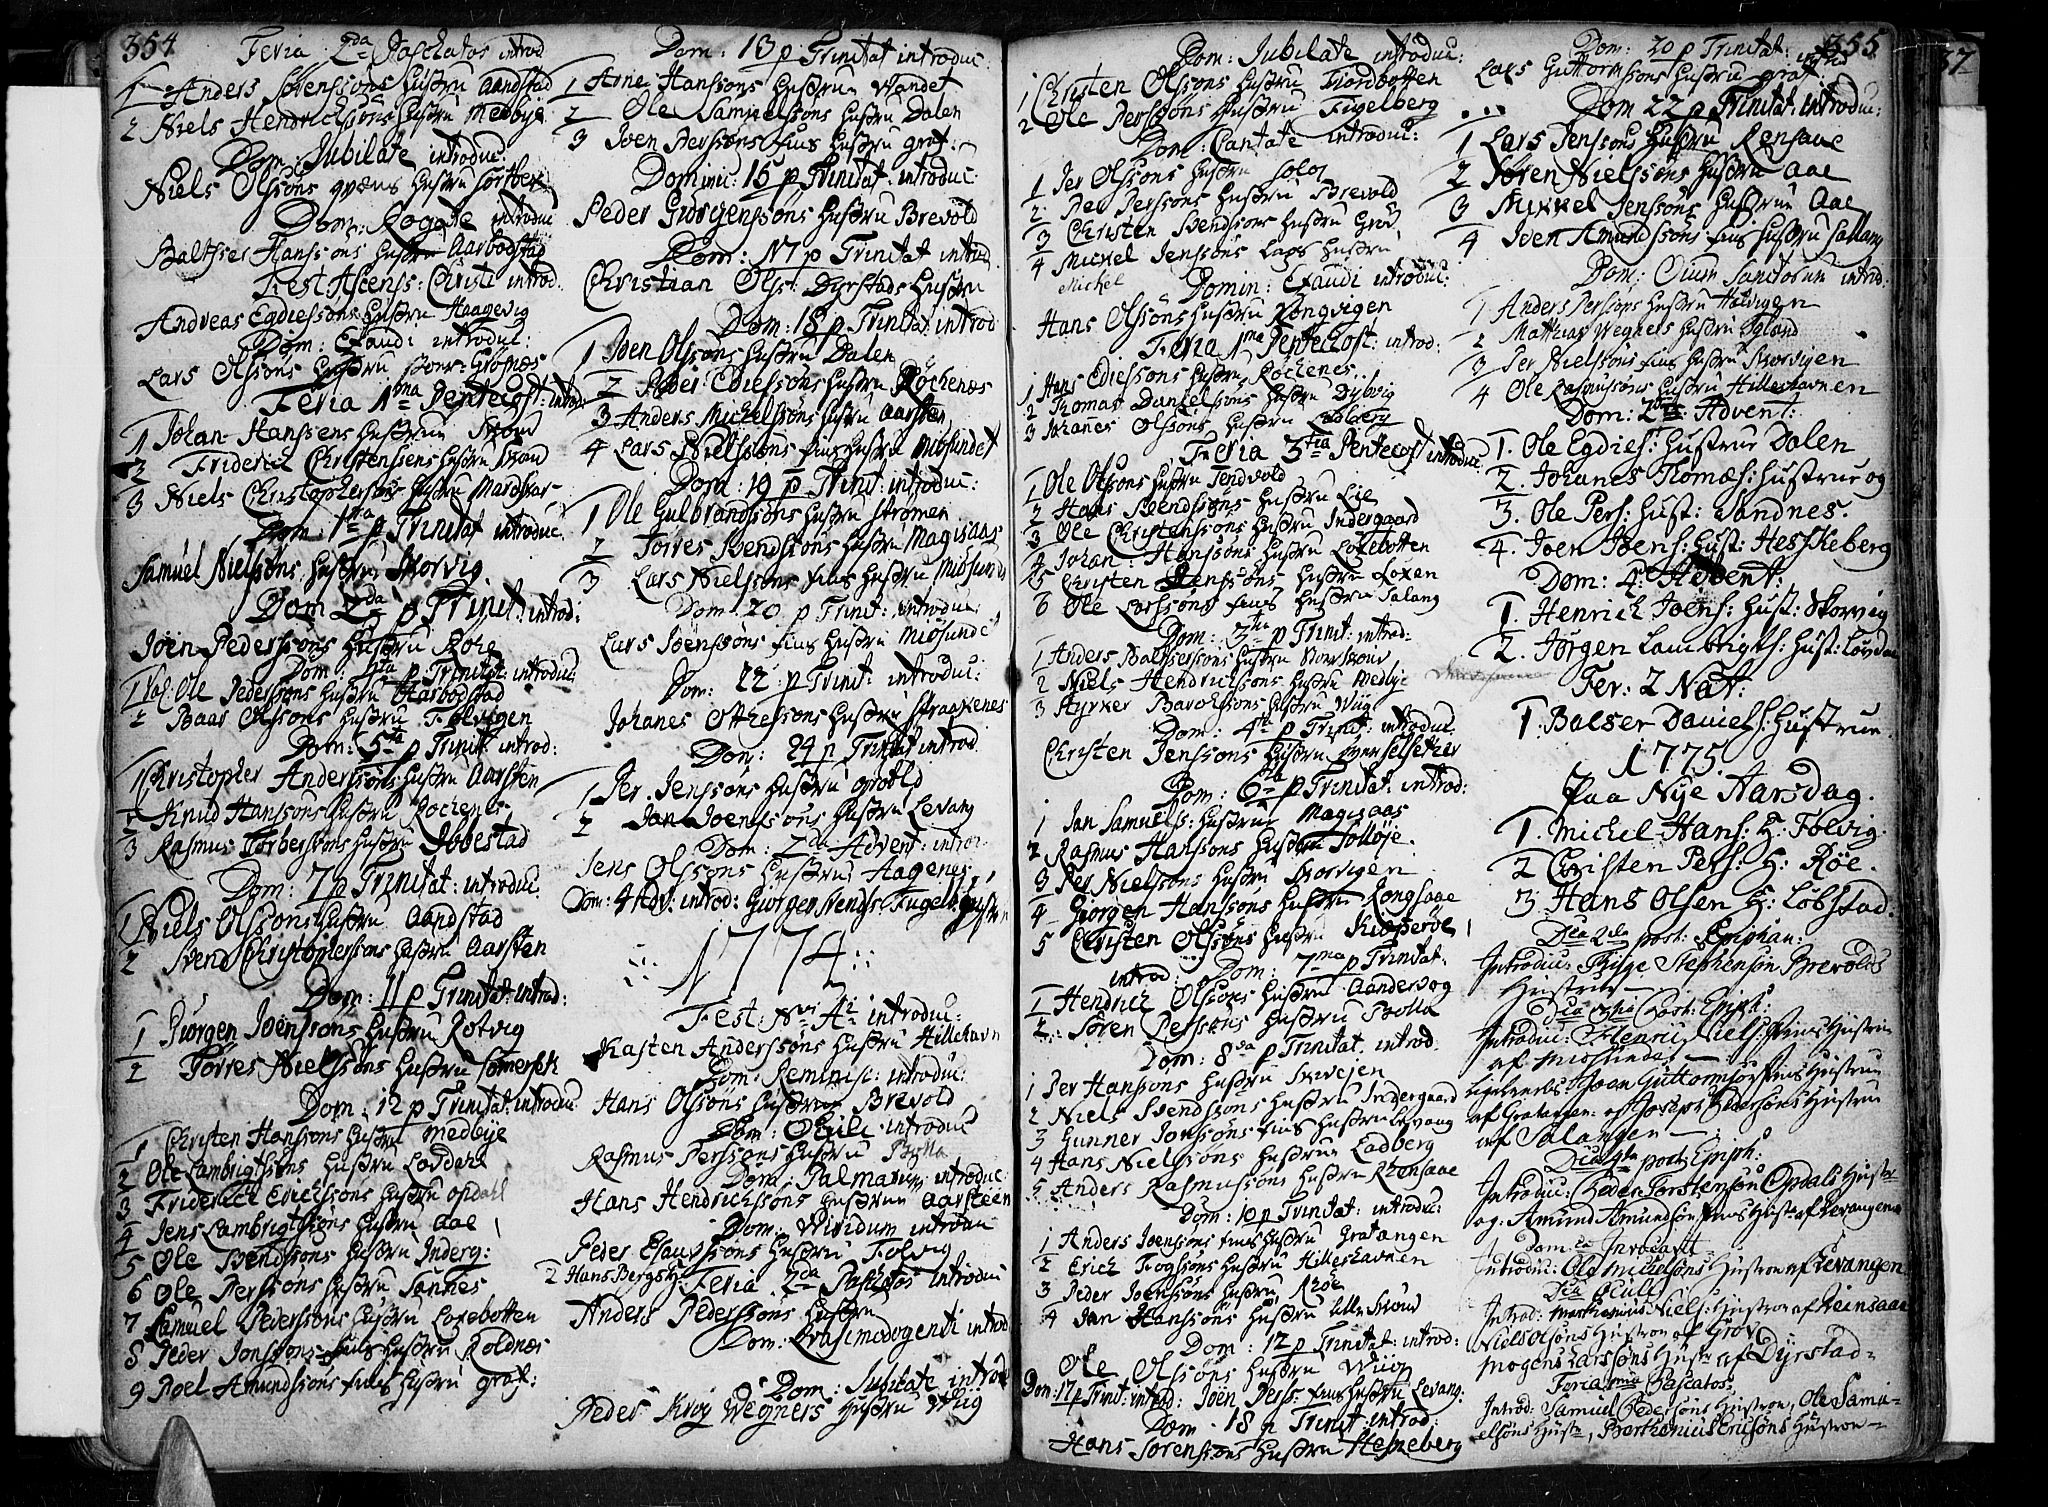 354
Feria 2da Paschatos introd
1 Anders Sørenssøns hustru Aandstad
2 Niels Hendrichsøns hustru Medbÿe
Dom: Jubilate introduc:
Niels Olssøns qvæns hustru
Dom: Rogate introduc
Baltser Hanssøns hustru Aarbodstad
Fest Ascens: Christi introd:
Andreas Egdiessøns hustru Haagevig
Dom: Exaudi introduc:
Lars Olssøns hustru Store Grofnæs
Feria 1ma Pentecost: introd:
1 Johan Hanssens hustru Skond
2 Friderich Christenssens hustru
3 Niels Christophersøns hustru
Dom: 1ma p Trinitat introduc:
Samuel Nielssøns hustru Skorvig
Dom 2da p Trinit: introd:
Joen Pederssøns hustru Røke
Dom: p Trinitat: introduc:
1 Ole Pederssøns hustru Harbodstad
2 Baar Olssøns hustru Folvigen
Dom: 5ta p Trinit: introd:
1 Christopher Anderssøns hustru Aarsten
2 Knud Hanssøns hustru Rochenes
3 Rasmus Torberssøns hustru Ibbestad
Dom: 7 p Trinitat: introduc:
1 Niels Olssøns hustru Aandstad
2 Svend Christophersøns hustru Aarsten
Dom: 11 p Trinitat: introd:
1 Jørgen Joenssøns hustru Rotvig
2 Torres Nielssøns hustru
Dom: 12 p Trinitat: introduc
1 Christen Hanssøns hustru Medbÿe
2 Ole Lambrigtssøns hustru Løvdahl
3 Friderich Erichssøns hustru Opdahl
4 Jens Lambrigtssøns hustru Aae
5 Ole Svendssøns hustru Inderg:
6 Ole Perssøns hustru Sannes
7 Samuel Pederssøns hustru Loxebotten
8 Peder Jonssøns hustru Roldnæs
9 Poel Amundssøns fins hustru Grat:
Dom: 13 p Trinitat introduc:
1 Arne Hanssøns hustru Vandet
2 Ole Samuelssøns hustru Dalen
3 Joen Perssøns fins hustru grat:
Dominic: 15 p Trinitat: introduc
Peder Giørgenssøns hustru Brevold
Dom: 17 p Trinitat introd.
Christian Olss: Dyrstads hustru
Dom: 18 p Trinitat: introd
1 Joen Olssøns hustru Dalen
2 Peder Ediessøns hustru Rochenæs
3 Anders Michelssøns hustru Aarsten
4 Lars Nielssøns fins hustru Miøsundet
Dom: 19 p Trinit: introduc:
1 Ole Gulbrandssøns hustru Strømen
2 Torres Svendssøns hustru Magisaas
3 Lars Nielssøns fins hustru Miøsund
Dom: 20 p Trinit: introduc
Lars Joenssøns fins hustru Miøsundet
Dom: 22 p Trinit: introduc:
Johanes Othessøns hustru Kraakenes
Dom: 24 p Trinitat introd
1 Per Jenssøns hustru
2 Jan Joenssøns hustru Levang
Dom: 2da Advent: intro:
Jens Olssøns hustru Aagenes
Dom: 4 Adv: introd: Giørgen Svends: Fugelb: hustru
1774
Fest: Ni Ai introduc:
Kasten Anderssøns hustru Hillehavn
Dom: Reminisc: introduc:
Hans Olssøns hustru Brevold
Dom: Oculi introduc
Rasmus Perssøns hustru Bolla
Dom: Palmarum introduc:
Hans Hendrichssøns hustru Aarsteen
Dom: Viridum introdu
Peder Esaussøns hustru Folvig
2 Hans Bergs h: Feria 2da Paschatos introduc
Anders Pederssøns hustru
Dom: Qvasimodogenti introd
Dom: Jubilate introd
Peder Krøÿ Wegners hustru Wiig
355
Dom: Jubilate introduc:
1 Christen Olssøns hustru Fiordbotten
2 Ole Perssøns hustru Fugelberg
Dom: Cantate introduc:
1 Per Olssøns hustru
2 Per Perssøns hustru Brevold
3 Christen Svendssøns hustru Grov
4 Michel Jenssøns Laps hustru
Michel
Domin: Exaudi introduc:
Hans Olssøns hustru Kongvigen
Feria 1ma Pentecost: introd:
1 Hans Ediessøns hustru Rochenes
2 Thomas Danielssøns hustru Dybvig
3 Johanes Olssøns hustru Ladberg
Feria 3tia Pentecost introduc:
1 Ole Olssøns hustru Tendvold
2 Hans Svendssøns hustru Lie
3 Ole Christenssøns hustru Indergaard
4 Johan Hanssøns hustru Loxebotten
5 Christen Jenssøns hustru Loxen
6 Ole Larssøns fins hustru Salang
Dom: 3tia p Trinit: introd:
1 Anders Baltsersøns hustru
2 Niels Hendrichssøns hustru Medbye
3 Hysker Barokssøns hustru Wiig
Dom: 4ta p Trinit: introduc
Christen Jenssøns hustru
Dom: 6ta p Trinitat: introd:
1 Jan Samuelss: hustru Magisaas
2 Rasmus Hanssøns hustru Rolløje
3 Per Nielssøns hustru Skorvigen
4 Giørgen Hanssøns hustru Kongsaae
5 Christen Olssøns hustru Kiøpperøe
introd: Dom: 7ma p Trinitat:
1 Hendrich Olssøns hustru Aandervog
2 Søren Perssøns hustru Bolla
Dom: 8va p Trinitat. introd:
1 Per Hanssøns hustru Skevejen
2 Niels Svendssøns hustru Indergaard
3 Gunner Jonssøns fins hustru Levang
4 Hans Nielssøns hustru Ladberg
5 Anders Rasmussøns hustru Rhensaae
Dom: 10 p Trinitat: introduc:
1 Anders Joenssøns fins hustru Gratangen
2 Erich Trogssøns hustru Hilleshavnen
3 Peder Joenssøns hustru Røe
4 Jan Hanssøns hustru Lille Skond
Dom: 12 p Trinitat: introd:
Ole Olssøns hustru Wiig
Dom: 17 p Trinit: introd: Joen Perss: fins hustru Levang:
Dom 18 p Trinitat: introd:
Hans Sørenssøns hustru Hesgeberg
Dom: 20 p Trinitat: introd
Lars Guttormsøns hustru grat:
Dom 22 p Trinitat: introduc:
1 Lars Jenssøns hustru Rensaae
2 Søren Nielssøns hustru Aae
3 Mikkel Jenssøns hustru Aae
4 Joen Amundssøns fins hustru Sallang
Dom: Oium Sanctorum introd:
1 Anders Perssøns hustru Halvigen
2 Matthias Wegners hustru Fgland
3 Per Nielssøns fins hustru Skorvigen
4 Ole Rasmussøns hustru Hilleshavnen
Dom: 2da Advent:
1. Ole Egdies: Hustrue Dalen
2. Johanes Thomæs: Hustrue og
3. Ole Pers: Hust: Sandnes
4. Joen Joens: Hust: Hesskeberg
Dom: 4. Advent:
1. Henrich Joens: Hust: Skorvig
2. Jørgen Lambrigts: Hust: Løvda
Fer: 2 Nat:
1. Balser Daniels: Hustrue
1775
Paa Nye Aarsdag.
1. Michel Hans: H: Folvig.
2 Christen Pers: H: Røe.
3 Hans Olsen H: Løbstad.
Dca 2da post: Epiphan:
Introduc: Stephensøn Brevolds
Hustrue
Dca post: Epiph:
Introduc: Henric Niels: Fins Hustrue
af Miøsundet
Ligeledes: Joen Guttormsøns Fins Hustrue
af Gratangen: og Joseph Pedersøns Hustrue
af Salangen
Dca 4ta post: Epiph:
Introduc: Peder Torstensøn Opdals Hustr
og: Amund Amundsøn Fins Hust: af Levangen
Dom: Invocavit
Introduc: Ole Michelsøns Hustrue af Levangen
Dca Oculi
Introd: Niels: Hustrue af Reinsaae
Niels Olsøns Hustrue af Grov
Mogens Larssøns Hust: af Dyrstad
Feria Pascatos
Introd: Samuel Pedersøns Hustrue, Ole Samu-
elsøns Hust:, Barthenius Erichsøns Hustrue
37